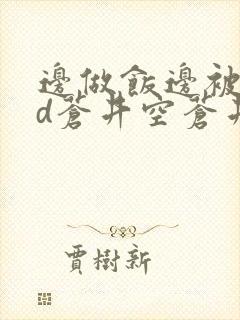 邊做飯邊被
d蒼井空蒼井
賈樹新